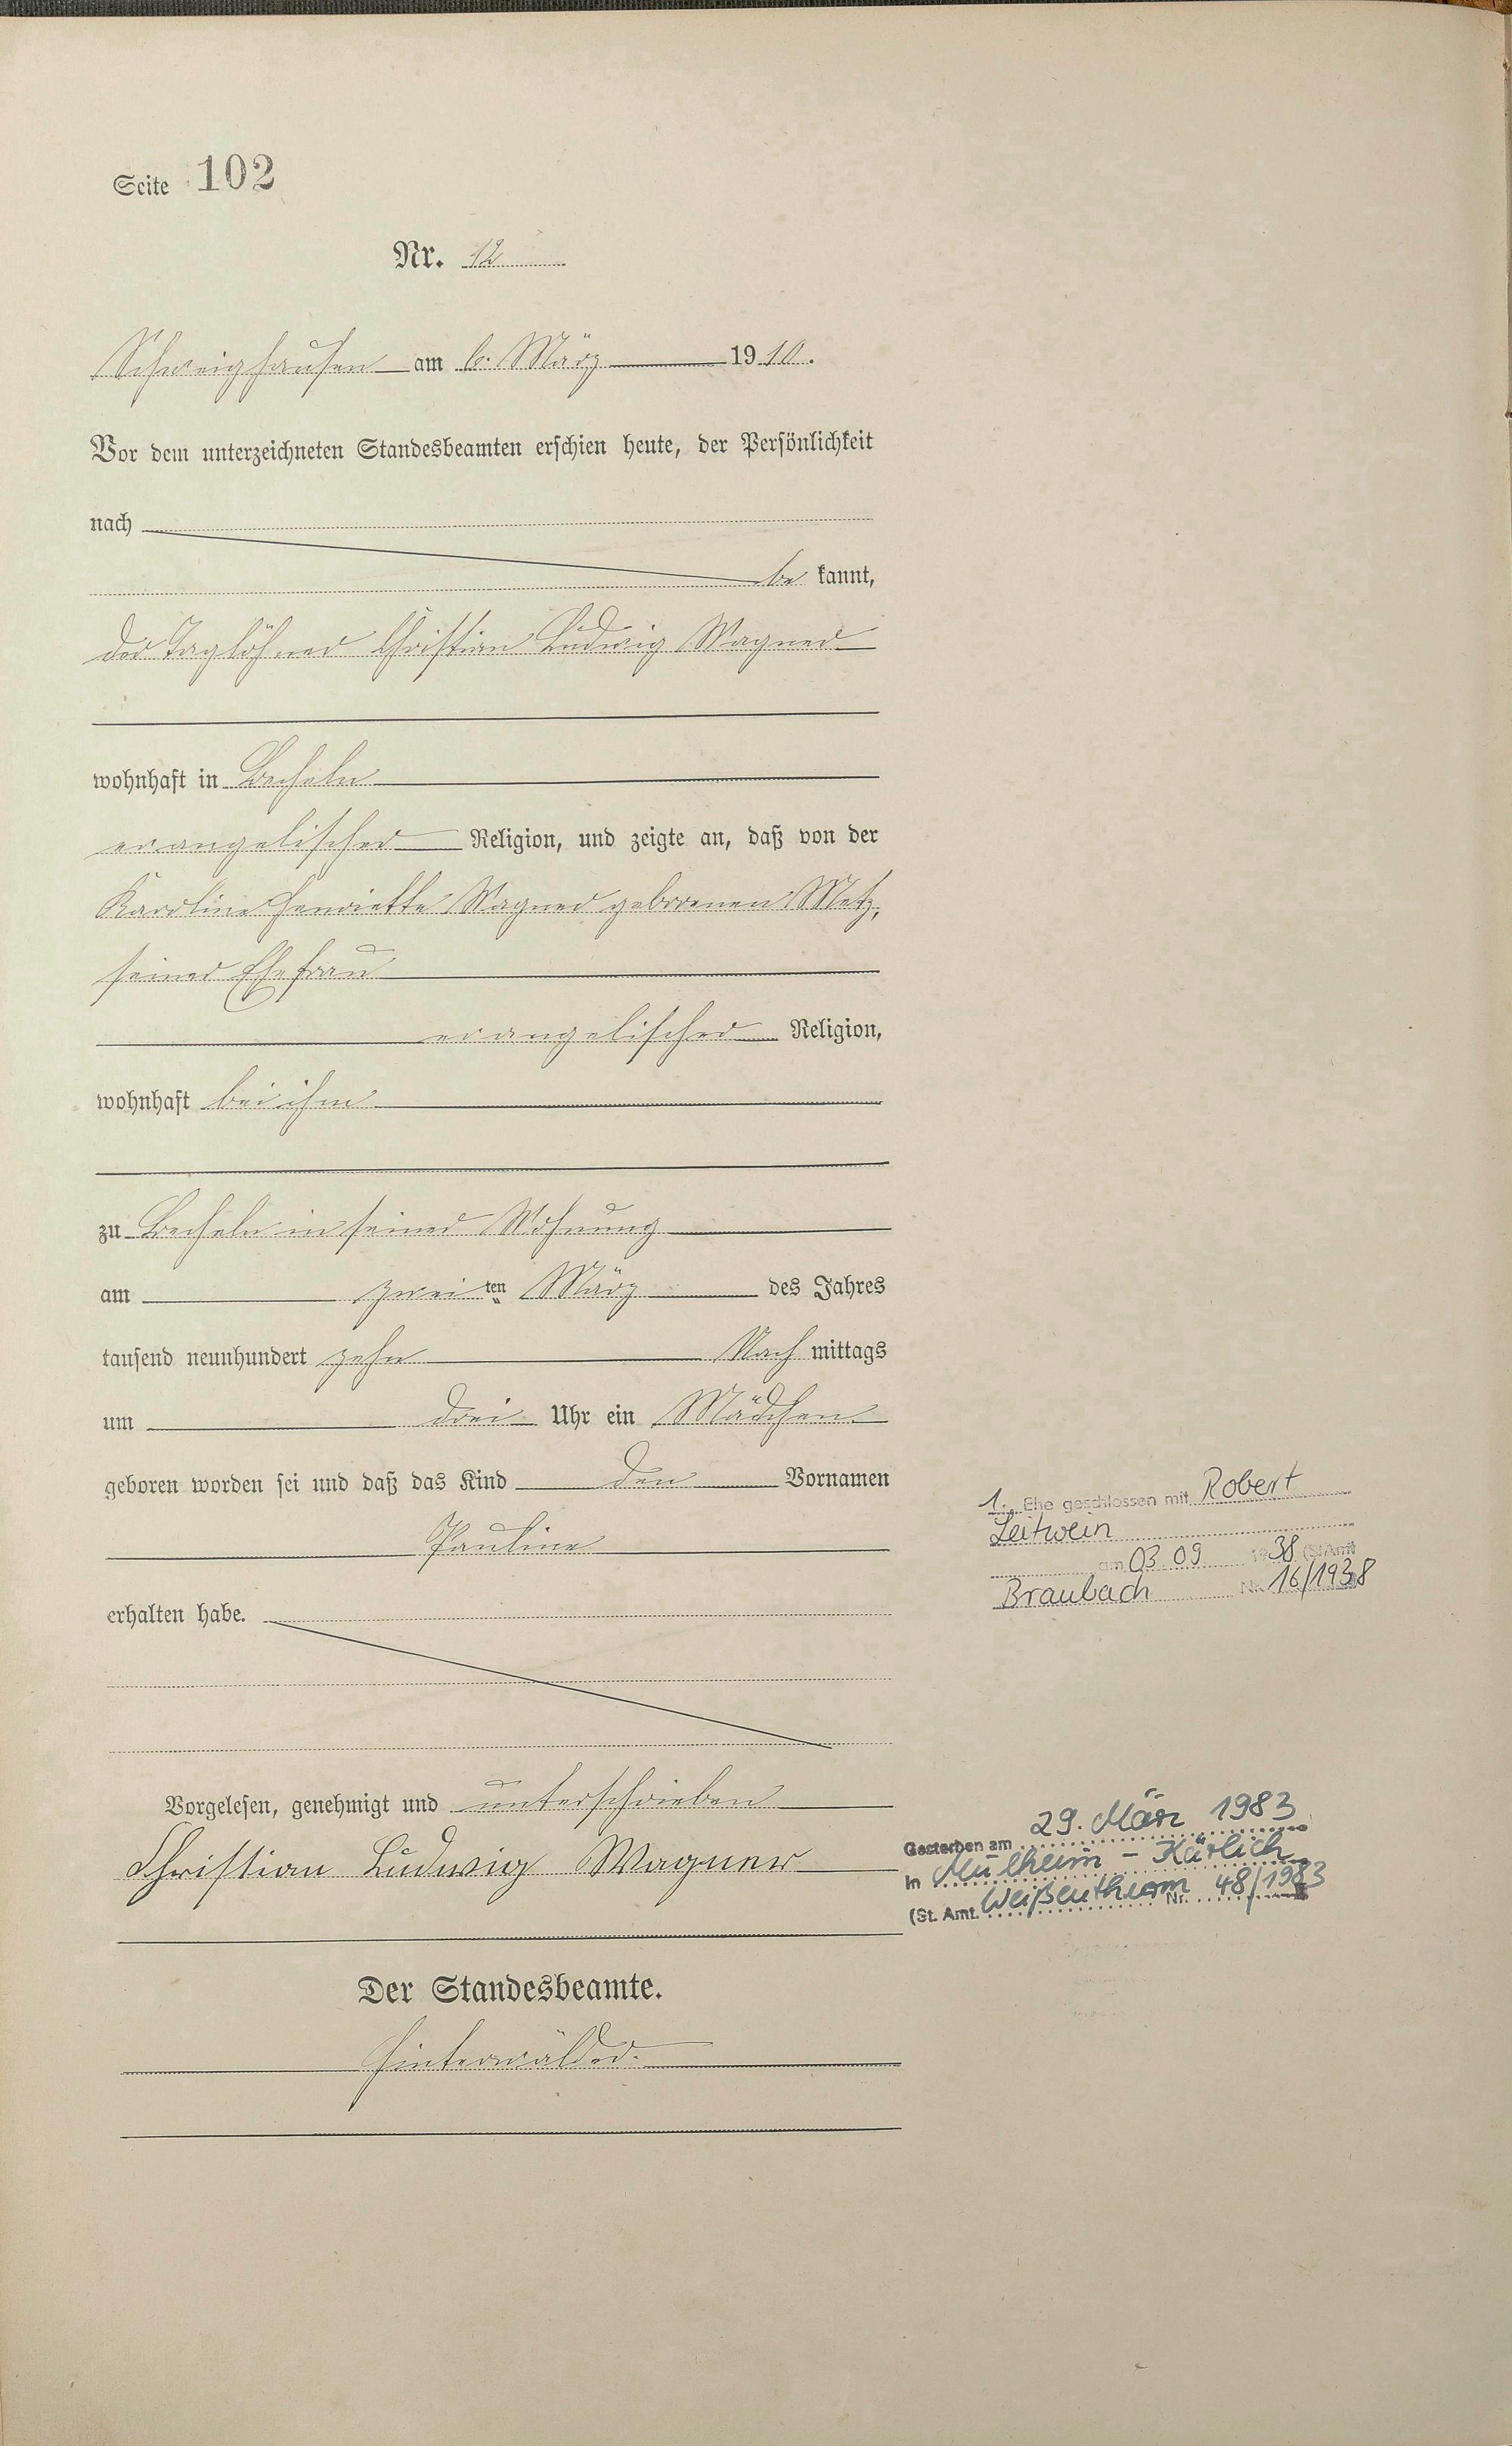 Seite 102
Nr. 12
Schweighausen am 6. März 1910.
Vor dem unterzeichneten Standesbeamten erschien heute, der Persönlichkeit
nach
be kannt,
der Taglöhner Christian Ludwig Wagner
wohnhaft in Becheln
evangelischer Religion, und zeigte an, daß von der
Karoline Henriette Wagner geborenen Metz,
seiner Ehefrau
evangelischer Religion,
wohnhaft bei ihm
zu Becheln in seiner Wohnung
am zwei ten März des Jahres
tausend neunhundert zehn Nach mittags
um drei Uhr ein Mädchen
geboren worden sei und daß das Kind den Vornamen
Pauline
erhalten habe.
Vorgelesen, genehmigt und unterschrieben
Christian Ludwig Wagner
Der Standesbeamte.
Hinterwälder.
1. Ehe geschlossen mit Robert
Leitwein
am 03.09. 1938 (StAmt
Braubach Nr. 16/1938
Gestorben am 29. März 1983
in Mülheim - Kärlich
(St. Amt. Weißenthurm Nr. 48/1983